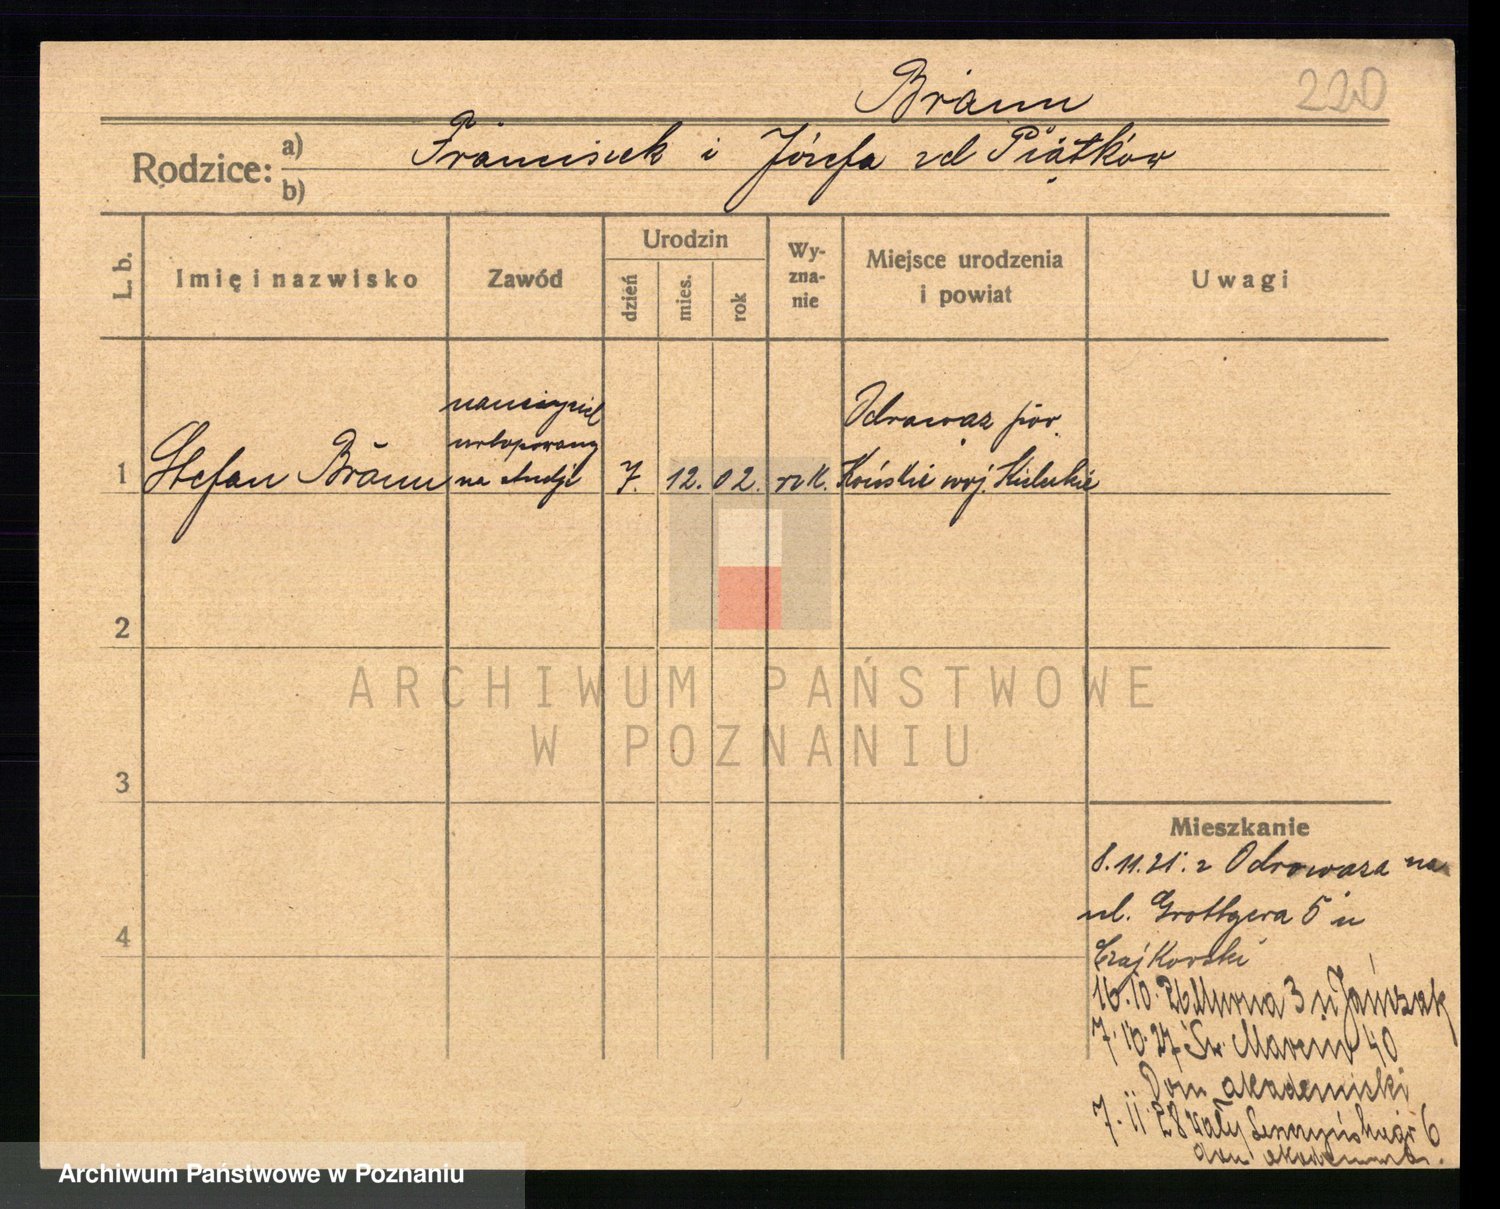 Braun
220
Rodzice:
a) Franciszek i Józefa zd Piątków
b)
L. b.
Imię i nazwisko
Zawód
Urodzin
dzień
mies.
rok
Wy-
zna-
nie
Miejsce urodzenia
i powiat
Uwagi
nauczyciel
urlopowany
na studje
Odrowąz pow.
1 Stefan Braun 7. 12. 02. rzk. Końskie woj. Kieleckie
2
3
4
ARCHIWUM PAŃSTWOWE
W POZNANIU
Mieszkanie
8.11.25. z Odrowąza na
ul. Grottgera 5 u
Czajkowski
16.10.26 Murna 3 u
7.10.27 Św. Marcin 40
Dom akademicki
7.II 28 Wały 6
dom
Archiwum Państwowe w Poznaniu